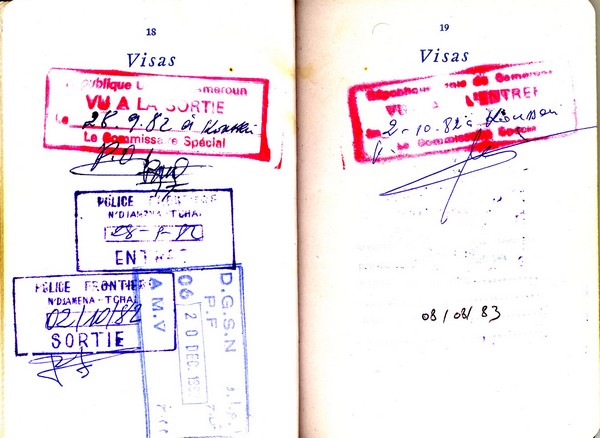 18
Visas
République U Cameroun
VU A LA SORTIE
Le 28.9.82 à Kousseri
Le Commissaire Spécial
POLICE FRONTIERE
N'DJAMENA-TCHAD
28-9-82
ENTREE
POLICE FRONTIERE
N'DJAMENA-TCHAD
02/10/82
SORTIE
D.G.S.N
P.F
06 20 DEC. 198
A M.V
19
Visas
République Unie du Cameroun
VU A L'ENTREE
2-10.82 à Kousseri
Le Commissaire Spécial
08/08/83